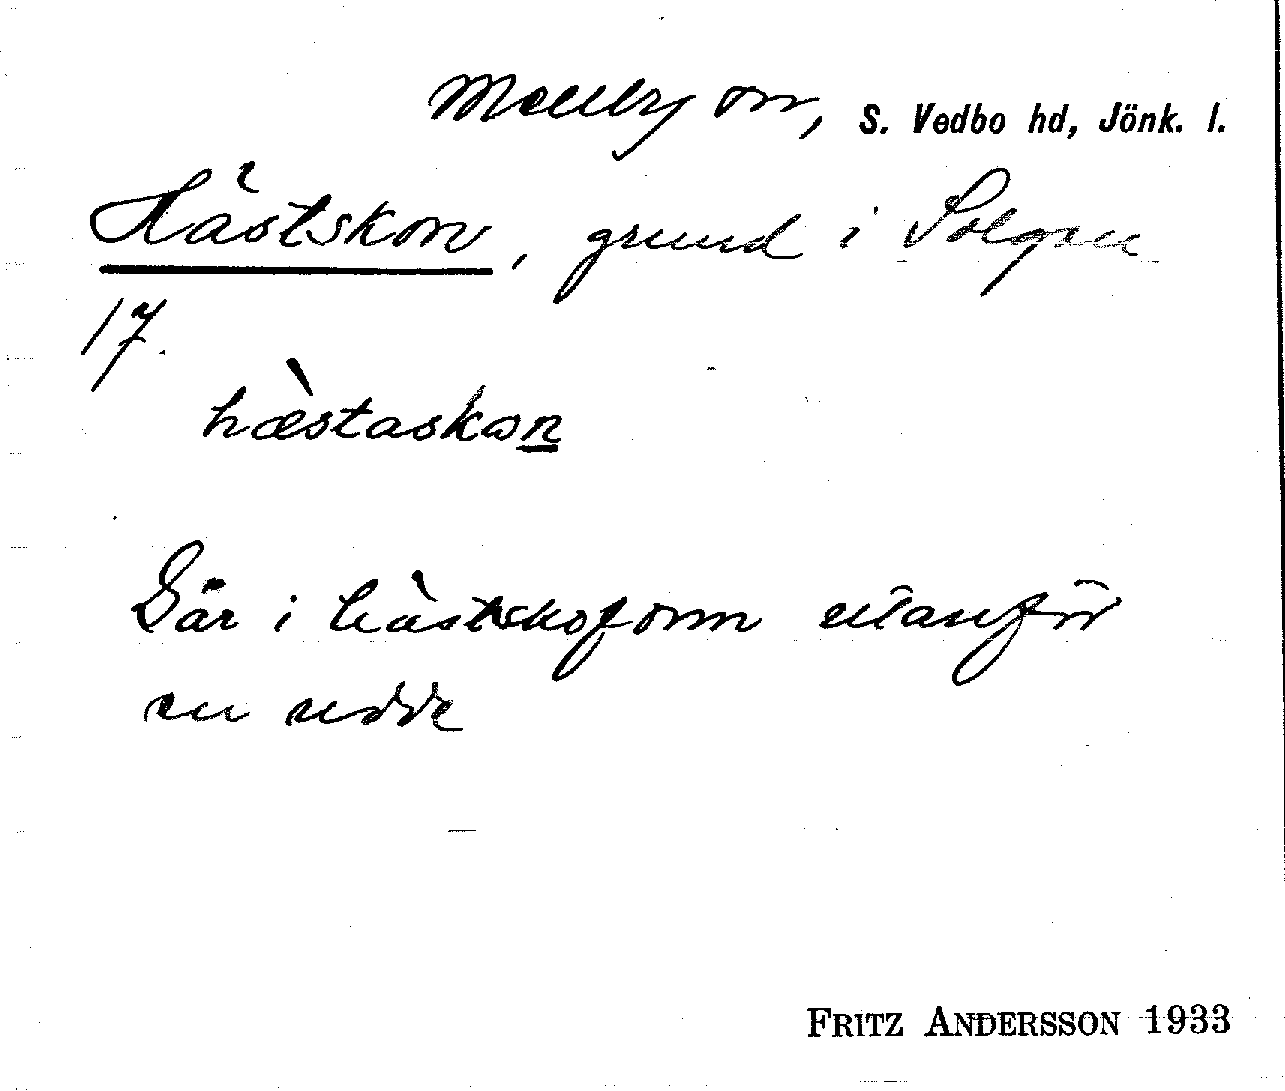 Mellby sn, S. Vedbo hd, Jönk. l.
Hästskon, grund i Solgen
17.
hæ̀staskon
Går i hästskoform utanför
en udde
FRITZ ANDERSSON 1933